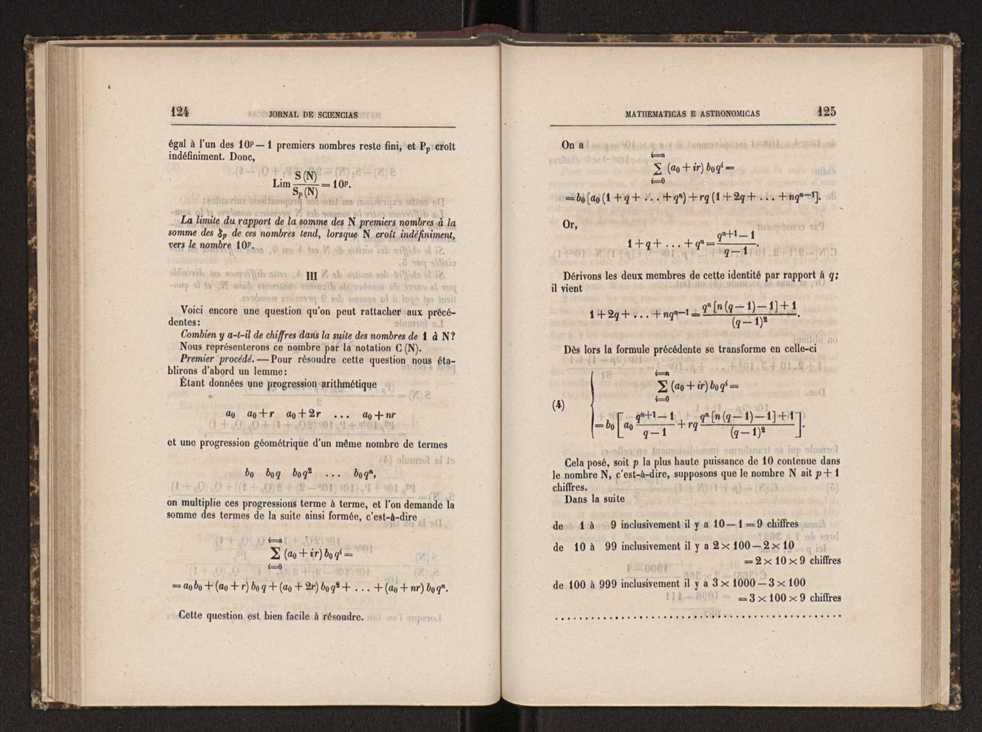 124 JORNAL DE SCIENCIAS
égal à l'un des 10ᵖ — 1 premiers nombres reste fini, et Pₚ croît
indéfiniment. Donc,
Lim S(N)/Sₚ(N) = 10ᵖ.
La limite du rapport de la somme des N premiers nombres à la
somme des ξₚ de ces nombres tend, lorsque N croît indéfiniment,
vers le nombre 10ᵖ.
III
Voici encore une question qu'on peut rattacher aux précé-
dentes:
Combien y a-t-il de chiffres dans la suite des nombres de 1 à N?
Nous représenterons ce nombre par la notation C(N).
Premier procédé. — Pour résoudre cette question nous éta-
blirons d'abord un lemme:
Étant données une progression arithmétique
a₀ a₀+r a₀+2r ... a₀+nr
et une progression géométrique d'un même nombre de termes
b₀ b₀q b₀q² ... b₀qⁿ,
on multiplie ces progressions terme à terme, et l'on demande la
somme des termes de la suite ainsi formée, c'est-à-dire
i=n
∑ (a₀ + ir) b₀qⁱ =
i=0
= a₀b₀ + (a₀ + r) b₀q + (a₀ + 2r) b₀q² + ... + (a₀ + nr) b₀qⁿ.
Cette question est bien facile à résoudre.
MATHEMATICAS E ASTRONOMICAS 125
On a
i=n
∑ (a₀ + ir) b₀qⁱ =
i=0
= b₀ [a₀ (1 + q + ... + qⁿ) + rq (1 + 2q + ... + nqⁿ⁻¹].
Or,
1 + q + ... + qⁿ = (qⁿ⁺¹ — 1)/(q — 1).
Dérivons les deux membres de cette identité par rapport à q;
il vient
1 + 2q + ... + nqⁿ⁻¹ = (qⁿ [n (q — 1) — 1] + 1)/(q — 1)².
Dès lors la formule précédente se transforme en celle-ci
i=n
∑ (a₀ + ir) b₀qⁱ =
i=0
(4)
= b₀ [a₀ (qⁿ⁺¹ — 1)/(q — 1) + rq (qⁿ [n (q — 1) — 1] + 1)/(q — 1)²].
Cela posé, soit p la plus haute puissance de 10 contenue dans
le nombre N, c'est-à-dire, supposons que le nombre N ait p + 1
chiffres.
Dans la suite
de 1 à 9 inclusivement il y a 10 — 1 = 9 chiffres
de 10 à 99 inclusivement il y a 2 × 100 — 2 × 10
= 2 × 10 × 9 chiffres
de 100 à 999 inclusivement il y a 3 × 1000 — 3 × 100
= 3 × 100 × 9 chiffres
. . . . . . . . . . . . . . . . . . . . . . . . . . . . . . . . . . . . . . . .